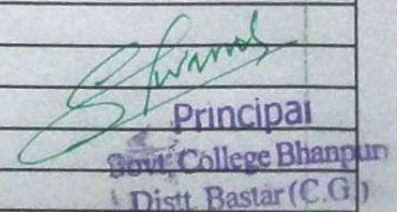 Principal
Govt. College Bhanpuri
Distt. Bastar (C.G.)